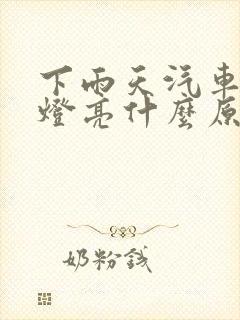 下雨天汽車
燈亮什麼原
奶粉錢